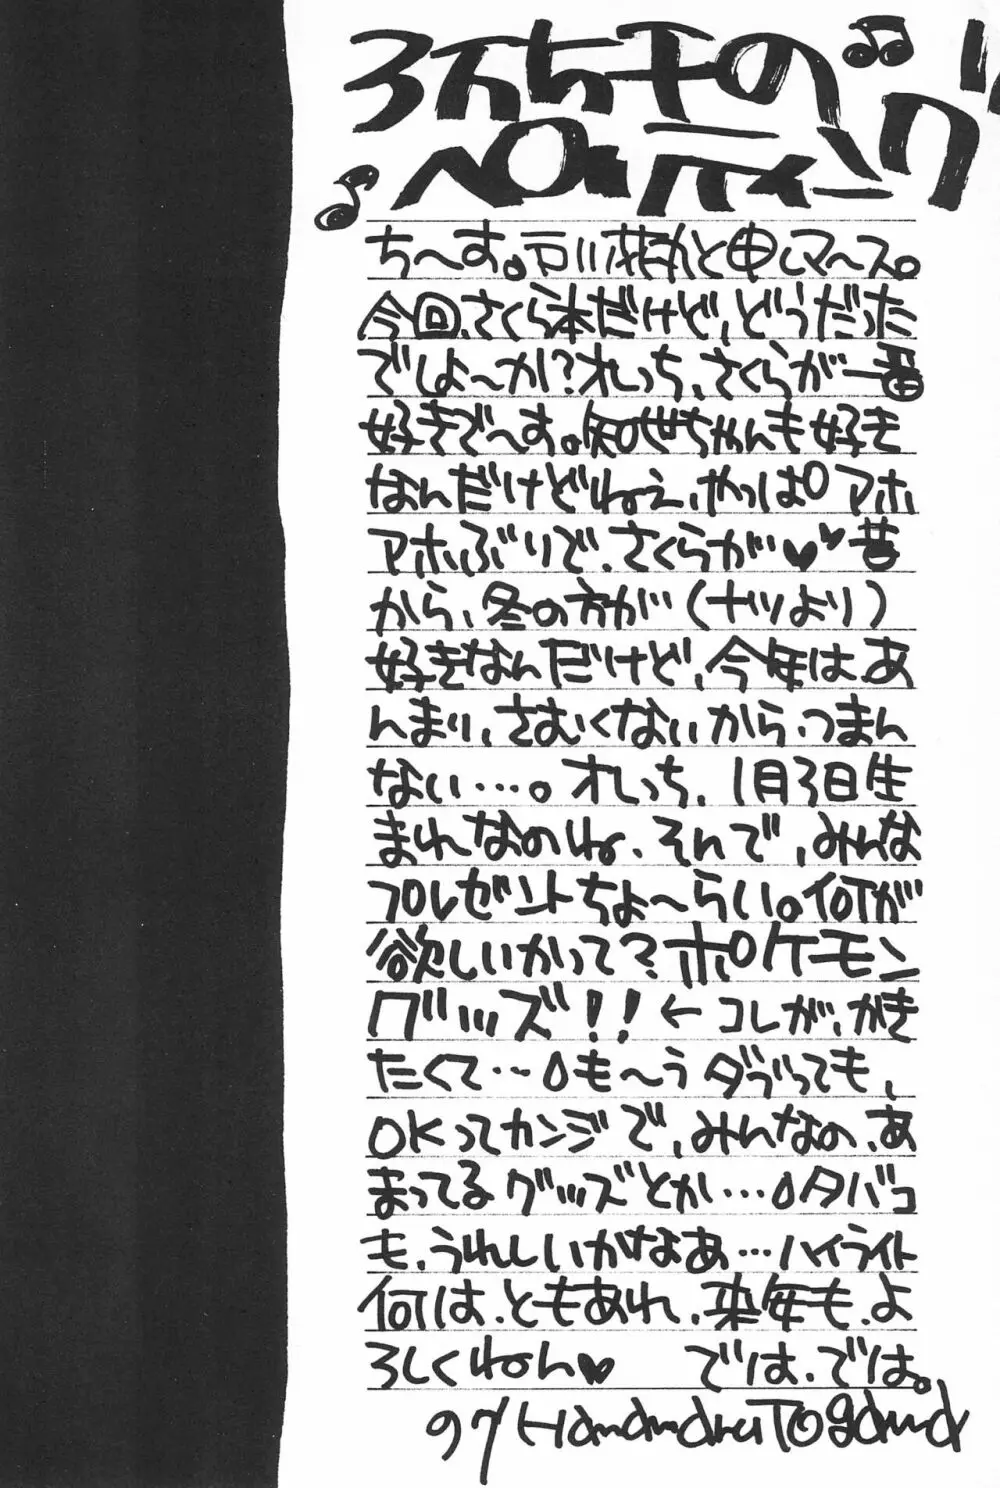 ち〜す。戸川花丸と申しマ〜ス。
今回、さくら本だけど、どうだった
でしょ〜か?オレっち、さくらが一番
好きで〜す。知世ちゃんも好き
なんだけどねぇ、やっぱ アホ
アホぶりで、さくらが♥♥昔
から、冬の方が(ナツより)
好きなんだけど、今年は、あ
んまり、さむくないから、つまん
ない…。オレっち、1月3日生
まれなのね、そんで、みんな
プレゼントちょ〜らい。何が
欲しいかって?ポケモン
グッズ!!←コレが、かき
たくて…。も〜うダブっても、
OKってカンジで、みんなの、あ
まってるグッズとか…。タバコ
も、うれしいがなぁ…ハイライト
何は、ともあれ、来年も、よ
ろしくねん♥ では、では。